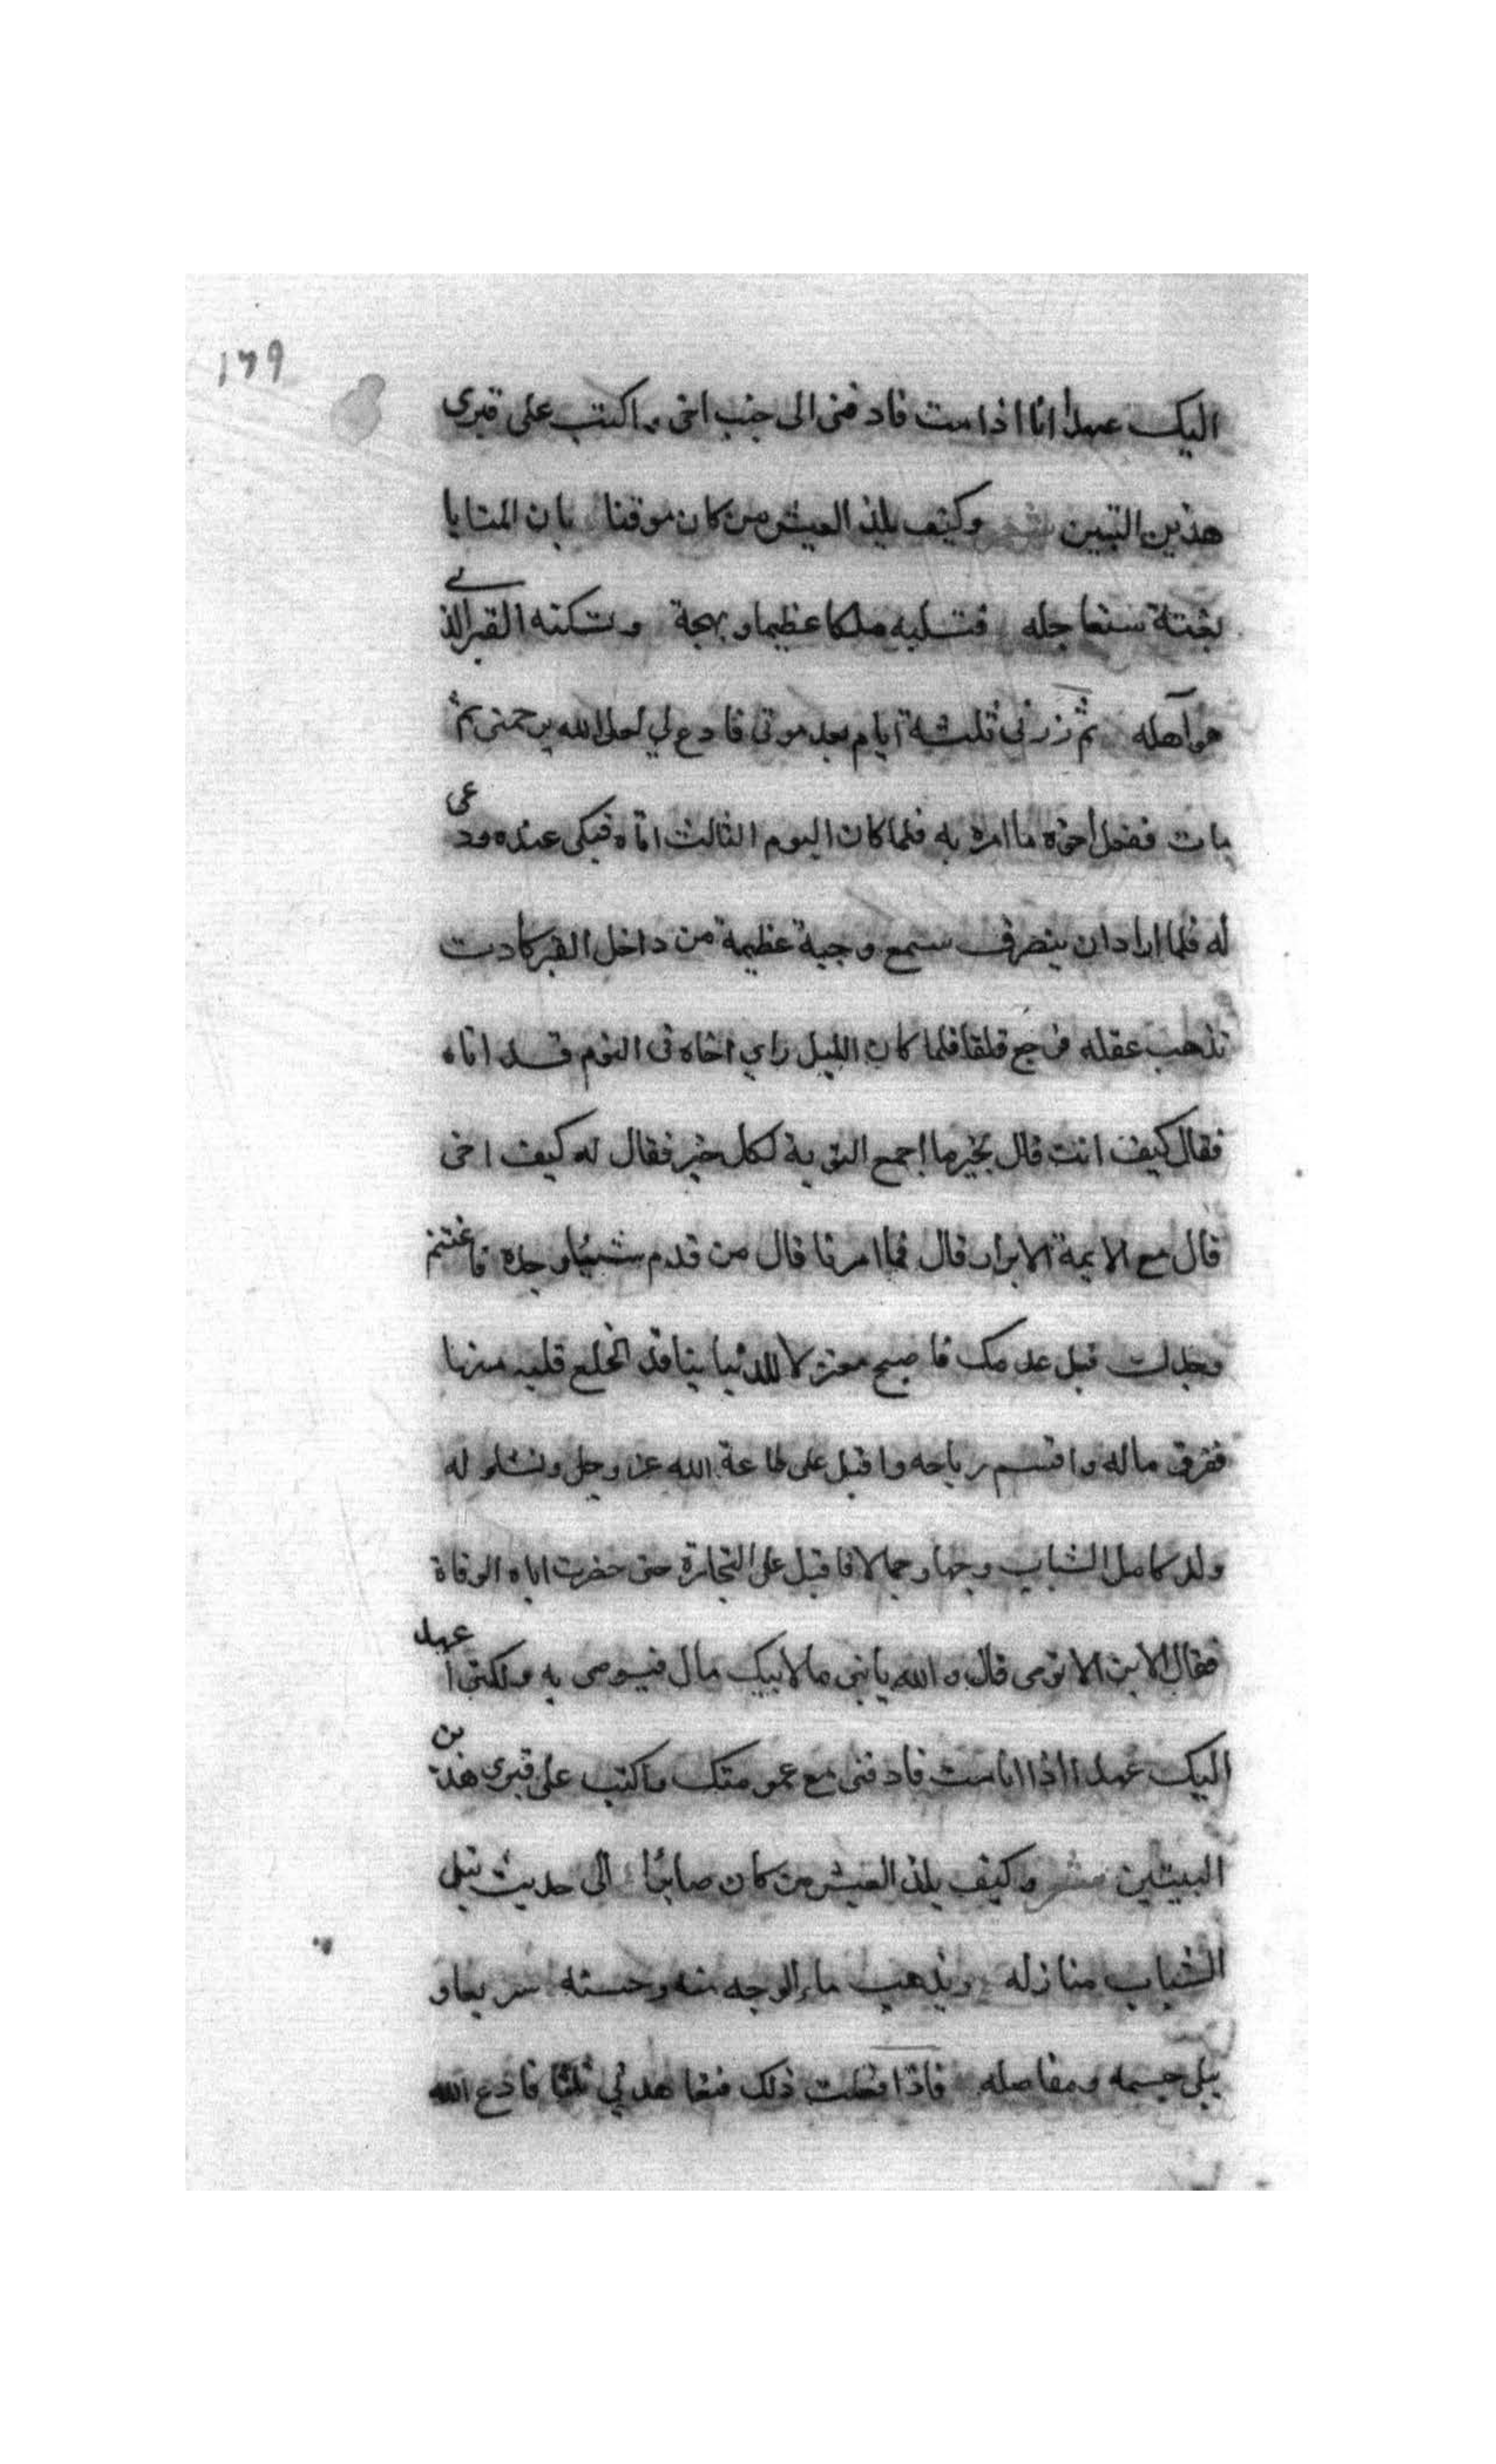 ١٦٩
اليك عهدا انا اذا مت فادفنى الى جنب اخى واكتب على قبرى
هذين البيتين شعر وكيف يلذ العيش من كان موقنا بان المنايا
بغتة ستعاجله فتسلبه ملكا عظيما وبهجة وتسكنه القبر الذى
هو آهله ثم زرنى ثلثة ايام بعد موتى فادع لي لعل الله يرحمنى ثم
مات ففعل اخوه ما امره به فلما كان اليوم الثالث اتاه فبكى عنده ودعى
له فلما اراد ان ينصرف سمع وجبة عظيمة من داخل القبر كادت
تذهب عقله فرجع قلقا فلما كان الليل راي اخاه فى النوم قد اتاه
فقال كيف انت قال بخير ما اجمع التوبة لكل خير فقال له كيف اخى
قال مع الايمة الابرار قال فما امرنا قال من قدم شيئا وجده فاغتنم
وجدك قبل عدمك فاصبح معتزلا للدنيا انخلع قلبه منها
ففرق ماله واقتسم رباحه واقبل على طاعة الله عز وجل ونشاء له
ولد كامل الشباب وجها وجمالا فاقبل على التجارة حتى حضرت اباه الوفاة
فقال الابن الا توصى قال والله يا بنى ما لابيك مال فيوصى به ولكنى اعهد
اليك عهدا اذا انا مت فادفنى مع عمومتك واكتب على قبرى هذين
البيتين شعر وكيف يلذ العيش من كان صايرا الى حديث تبلى
الشباب منازله ويذهب ماء الوجه منه وحسنه سريعا و
يبلى جسمه ومفاصله فاذا فعلت ذلك فتعاهدني ثلثا فادع الله